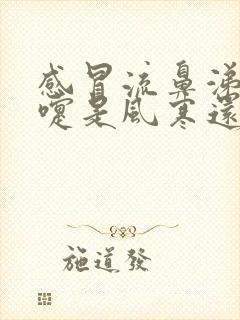 感冒流鼻涕
嚏是風寒還
施道發